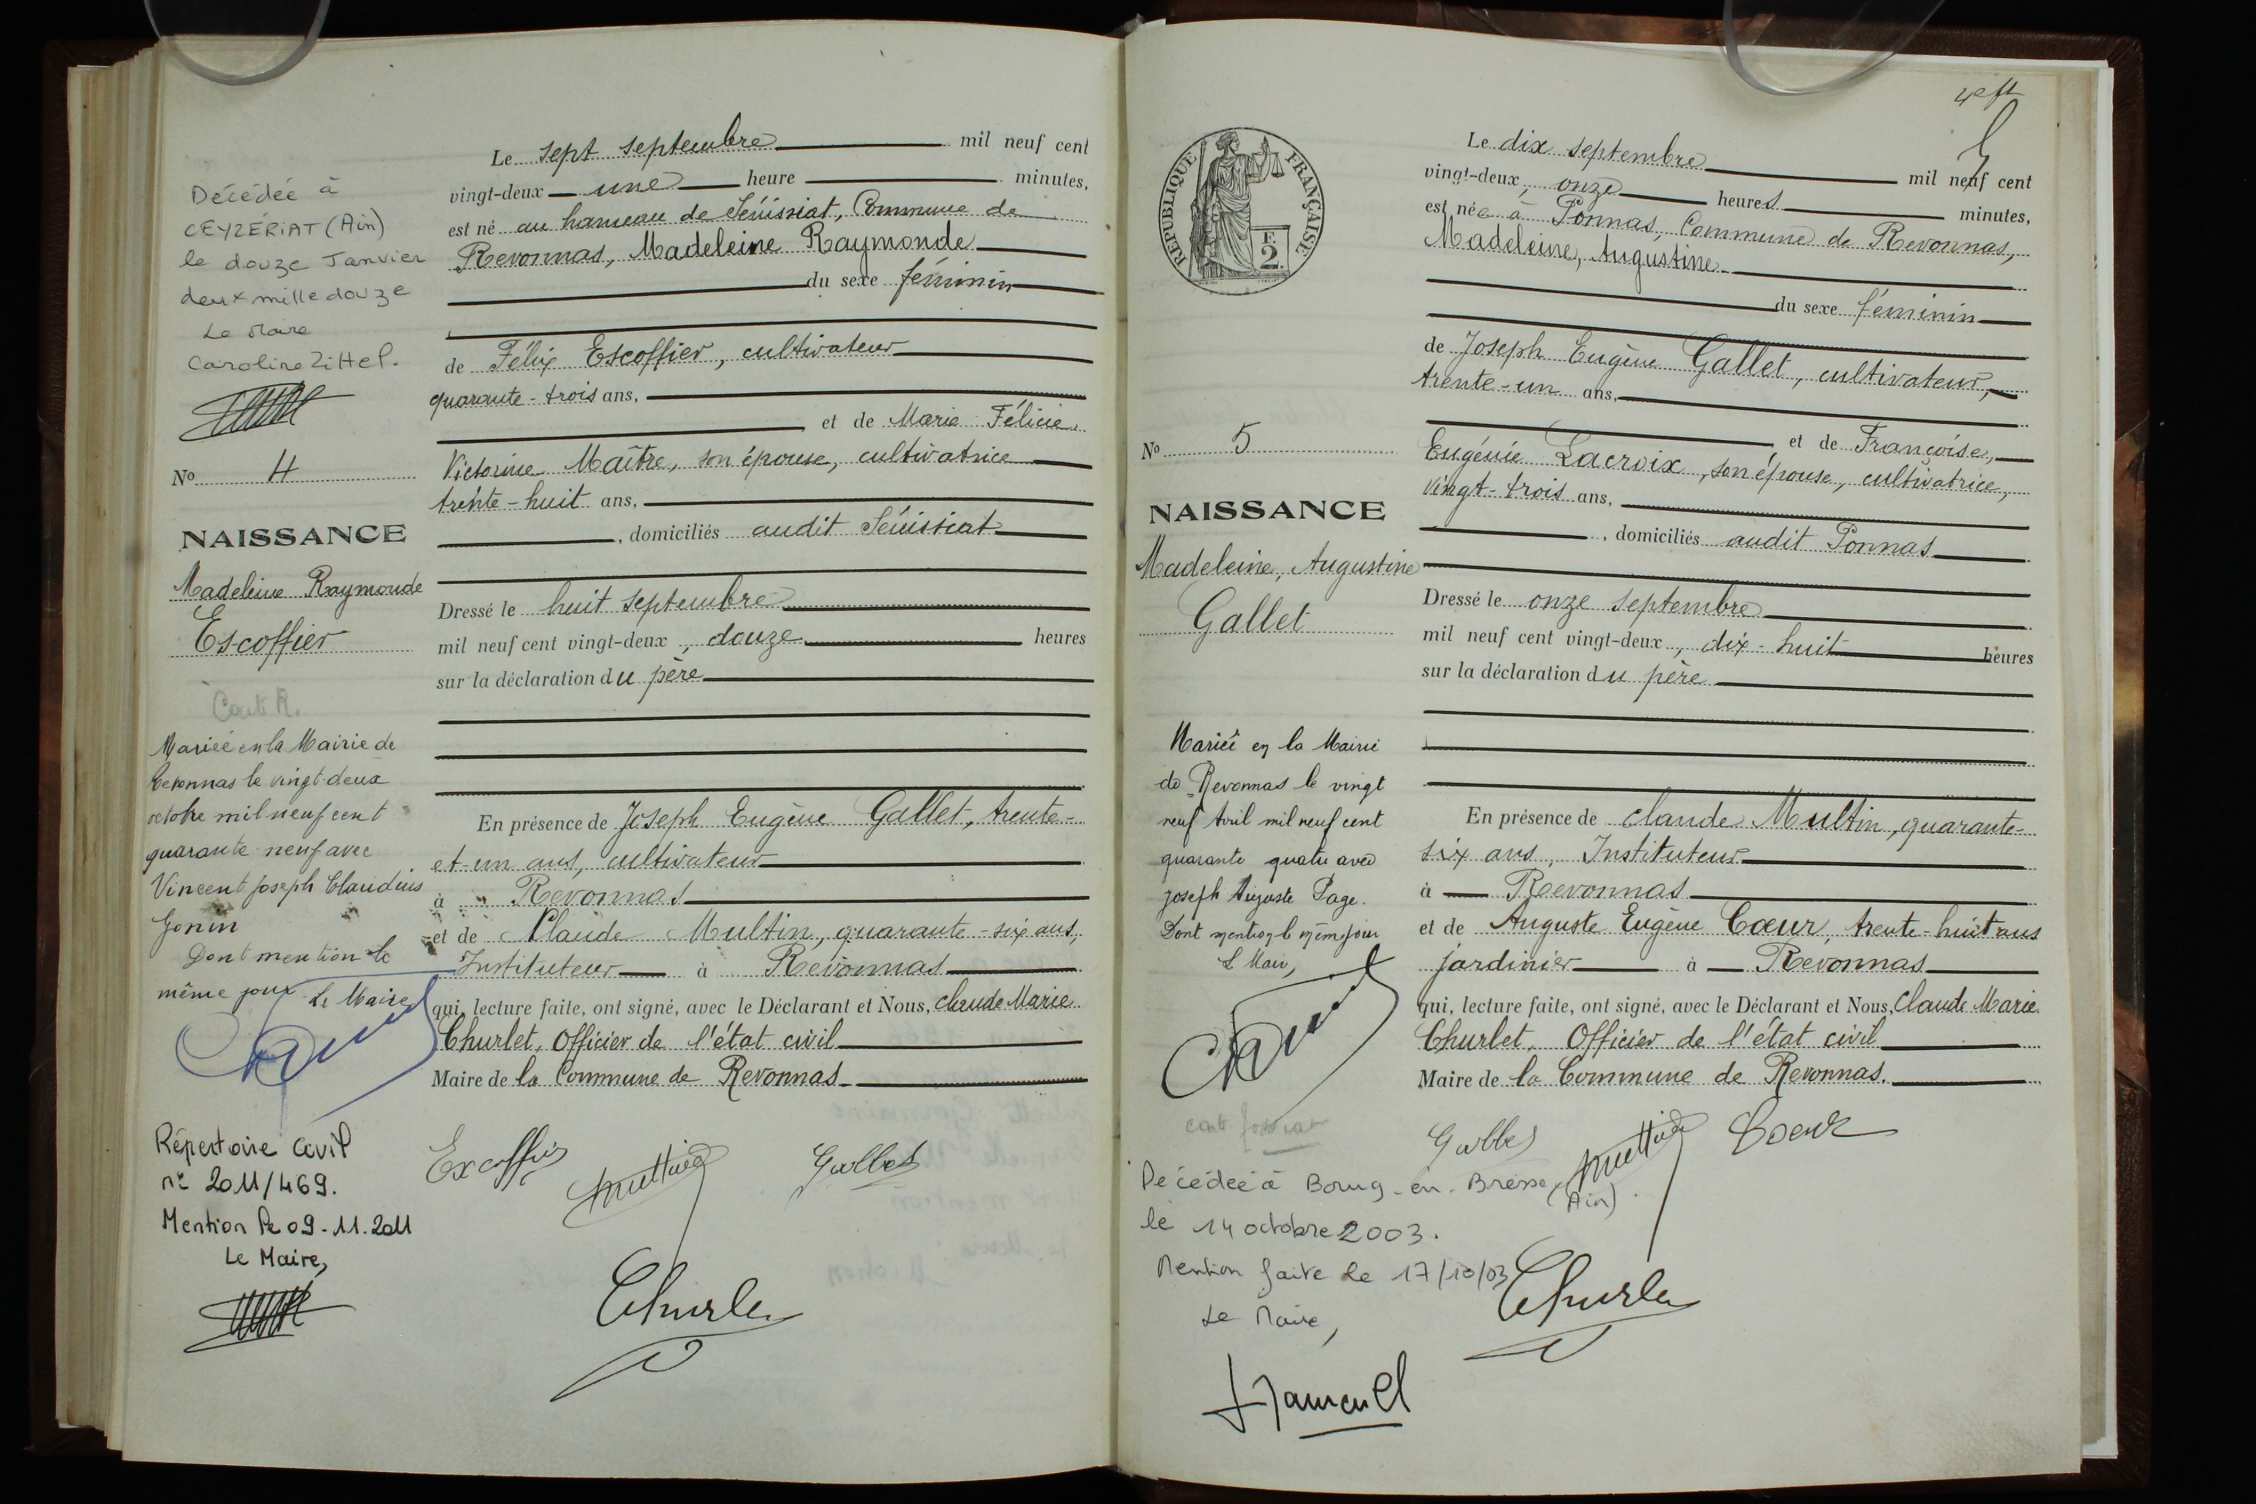 Décédée à
CEYZÉRIAT (Ain)
le douze Janvier
deux mille douze
Le Maire
Caroline Zittel.
No 4
NAISSANCE
Madeleine Raymonde
Escoffier
Mariée en la Mairie de
Revonnas le vingt-deux
octobre mil neuf cent
quarante neuf avec
Vincent Joseph Claudius
Gonin
Dont mention le
même jour Le Maire
Répertoire Civil
n° 2011/469.
Mention le 09-11-2011
Le Maire,
Le sept septembre mil neuf cent
vingt-deux une heure minutes,
est né au hameau de Séüissiat, Commune de
Revonnas, Madeleine Raymonde
du sexe féminin
de Félix Escoffier, cultivateur
quarante-trois ans,
et de Marie Félicie
Victorine Maître, son épouse, cultivatrice
trente-huit ans,
, domiciliés audit Séüissiat
Dressé le huit septembre
mil neuf cent vingt-deux, douze heures
sur la déclaration du père
En présence de Joseph Eugène Gallet, trente-
et-un ans, cultivateur
à Revonnas
et de Claude Multin, quarante-six ans,
Instituteur à Revonnas
qui, lecture faite, ont signé, avec le Déclarant et Nous, Claude Marie
Churlet, Officier de l'état civil
Maire de la Commune de Revonnas
Excoffier
Multin
Gallet
Churlet
4e ft
RÉPUBLIQUE FRANÇAISE
F.
2.
No 5
NAISSANCE
Madeleine, Augustine
Gallet
Mariée en la Mairie
de Revonnas le vingt
neuf Avril mil neuf cent
quarante quatre avec
Joseph Auguste Page.
Dont mention le même jour
Le Maire,
Décédée à Bourg-en-Bresse (Ain).
le 14 octobre 2003.
Mention faite le 17/10/03
Le Maire,
Le dix septembre mil neuf cent
vingt-deux, onze heures minutes,
est née à Ponnas, Commune de Revonnas,
Madeleine, Augustine
du sexe féminin
de Joseph Eugène Gallet, cultivateur,
trente-un ans,
et de Françoise,
Eugénie Lacroix, son épouse, cultivatrice,
vingt-trois ans,
, domiciliés audit Ponnas
Dressé le onze septembre
mil neuf cent vingt-deux, dix-huit heures
sur la déclaration du père
En présence de Claude Multin, quarante-
six ans, Instituteur
à Revonnas
et de Auguste Eugène Cœur, trente-huit ans
jardinier à Revonnas
qui, lecture faite, ont signé, avec le Déclarant et Nous, Claude Marie
Churlet, Officier de l'état civil
Maire de la Commune de Revonnas.
Gallet
Multin
Coeur
Churlet